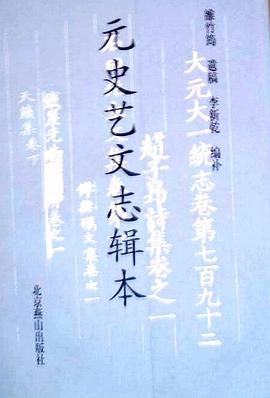 雒竹筠 遗稿 李新乾 编补
元史艺文志辑本
大元大一统志卷第七百九十二
赵子昂诗集卷之一
天籁集卷下
北京燕山出版社